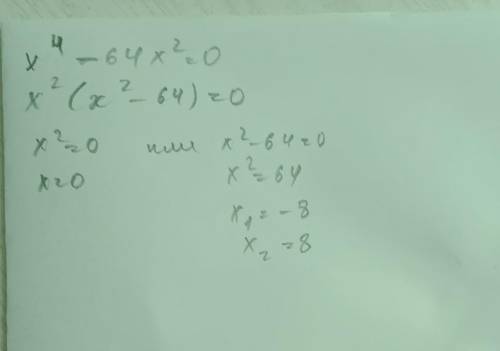 x⁴ - 64x² = 0
x² (x² - 64) = 0
x² = 0 или x² - 64 = 0
x = 0 x² = 64
x₁ = - 8
x₂ = 8